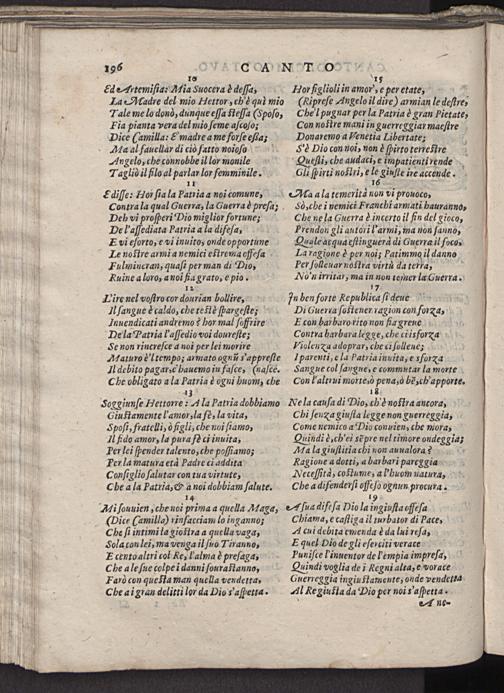 196 CANTO
10
Ed Artemisia: Mia Suocera è dessa,
La Madre del mio Hettor, ch'è quì mio
Tale me lo donò, dunque essa stessa (Sposo,
Fia pianta vera del mio seme ascoso;
Dice Camilla: E madre a me forse essa;
Ma al favellar di ciò fatto noioso
Angelo, che connobbe il lor monile
Tagliò il filo al parlar lor femminile.
11
E disse: Hor sia la Patria a noi comune,
Contra la qual Guerra, la Guerra è presa;
Deh vi prosperi Dio miglior fortune;
De l'assediata Patria a la difesa,
E vi esorto, e vi invito, onde opportune
Le nostre armi a nemici estrema offesa
Fulmineran, quasi per man di Dio,
Ruine a loro, a noi fia grato, e pio.
12
L'ire nel vostro cor dourian bollire,
Il sangue è caldo, che testè spargeste;
Inuendicati andremo? hor mal soffrire
De la Patria l'assedio voi doureste;
Se non rincresce a noi per lei morire
Maturo è'l tempo; armato ognũ s'appreste
Il debito pagar, c'hauemo in fasce, (nasce.
Che obligato a la Patria è ogni huom, che
13
Soggiunse Hettorre: A la Patria dobbiamo
Giustamente l'amor, la fè, la vita,
Sposi, fratelli, ò figli, che noi siamo,
Il fido amor, la pura fè ci inuita,
Per lei spender talento, che possiamo;
Per la matura età Padre ci addita
Consiglio salutar con tua virtute,
Che a la Patria, & a noi dobbiam salute.
14
Mi souuien, che noi prima a quella Maga,
(Dice Camilla) rinfacciam lo inganno;
Che si intimi la giostra a quella vaga,
Sola con lei, ma venga il suo Tiranno,
E cento altri col Re, l'alma è presaga,
Che a le sue colpe i danni sourastanno,
Farò con questa man quella vendetta,
Che ai gran delitti lor da Dio s'aspetta.
15
Hor figlioli in amor', e per etate,
(Riprese Angelo il dire) armian le destre,
Che'l pugnar per la Patria è gran Pietate,
Con nostre mani in guerreggiar maestre
Donaremo a Venetia Libertate;
S'è Dio con noi, non è spirto terrestre
Questi, che audaci, e impatienti rende
Gli spirti nostri, e le giuste ire accende.
16
Ma a la temerità non vi prouoco,
Sò, che i nemici Franchi armati hauranno,
Che ne la Guerra è incerto il fin del gioco,
Prendon gli autori l'armi, ma non sanno,
Quale acqua estinguerà di Guerra il foco.
La ragione è per noi; Patimmo il danno
Per solleuar nostra virtù da terra,
No'n irritar, ma in non temer la Guerra.
17
In ben forte Republica si deue
Di Guerra sostener ragion con forza,
E con barbaro rito non fia greue
Contra barbara legge, che ci sforza
Violenza adoprar, che ci solleue;
I parenti, e la Patria inuita, e sforza
Sangue col sangue, e commutar la morte
Con l'altrui morte, ò pena, ò bẽ, ch'apporte.
18
Ne la causa di Dio, ch'è nostra ancora,
Chi senza giusta legge non guerreggia,
Come nemico a Dio conuien, che mora,
Quindi è, ch'ei sẽpre nel timore ondeggia;
Ma la giustitia chi non auualora?
Ragione a dotti, a barbari pareggia
Necessità, costume, a l'huom natura,
Che a difendersi offeso ognun procura.
19
A sua difesa Dio la ingiusta offesa
Chiama, e castiga il turbator di Pace,
A cui debita emenda è da lui resa,
E quel Dio de gli eserciti verace
Punisce l'inuentor de l'empia impresa,
Quindi voglia de i Regni alta, e vorace
Guerreggia ingiustamente, onde vendetta
Al Re giusta da Dio per noi s'aspetta.
A no-